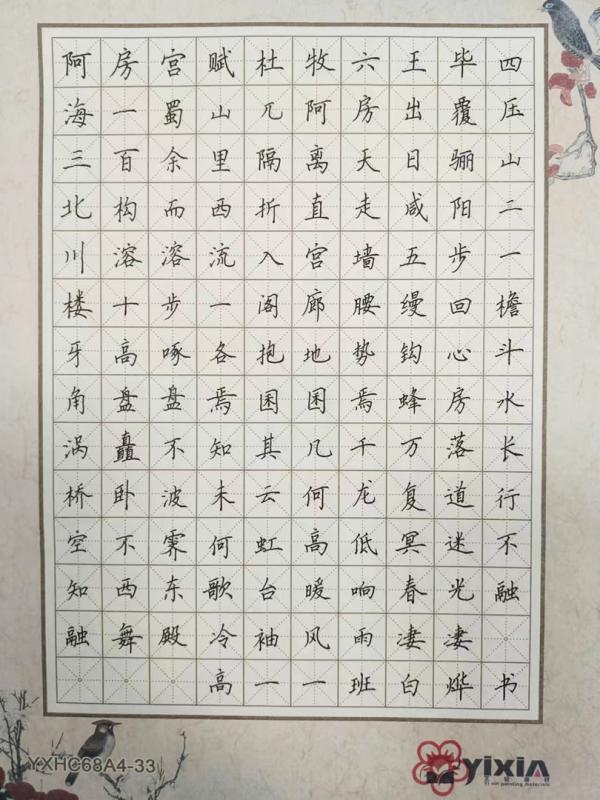 阿房宫赋杜牧六王毕四
海一蜀山兀阿房出覆压
三百余里隔离天日骊山
北构而西折直走咸阳二
川溶溶流入宫墙五步一
楼十步一阁廊腰缦回檐
牙高啄各抱地势钩心斗
角盘盘焉囷囷焉蜂房水
涡矗不知其几千万落长
桥卧波未云何龙复道行
空不霁何虹高低冥迷不
知西东歌台暖响春光融
融舞殿冷袖风雨凄凄
高一一班白烨书
YXHC68A4-33
yixin
Yi xin painting materials